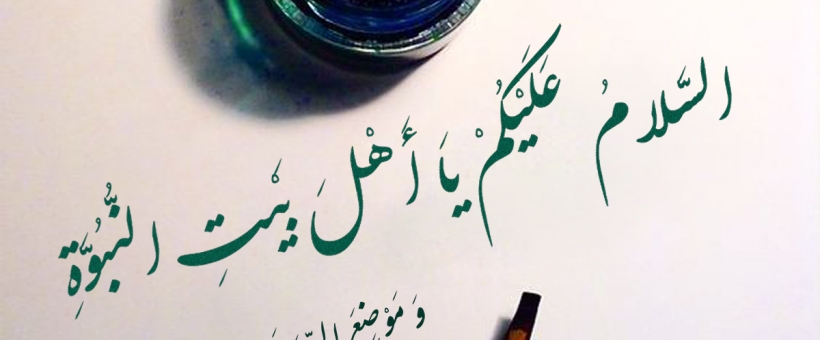 السَّلامُ عَلَيْكُمْ يَا أَهْلَ بَيْتِ النُّبُوَّةِ
وَ مَوْضِعَ